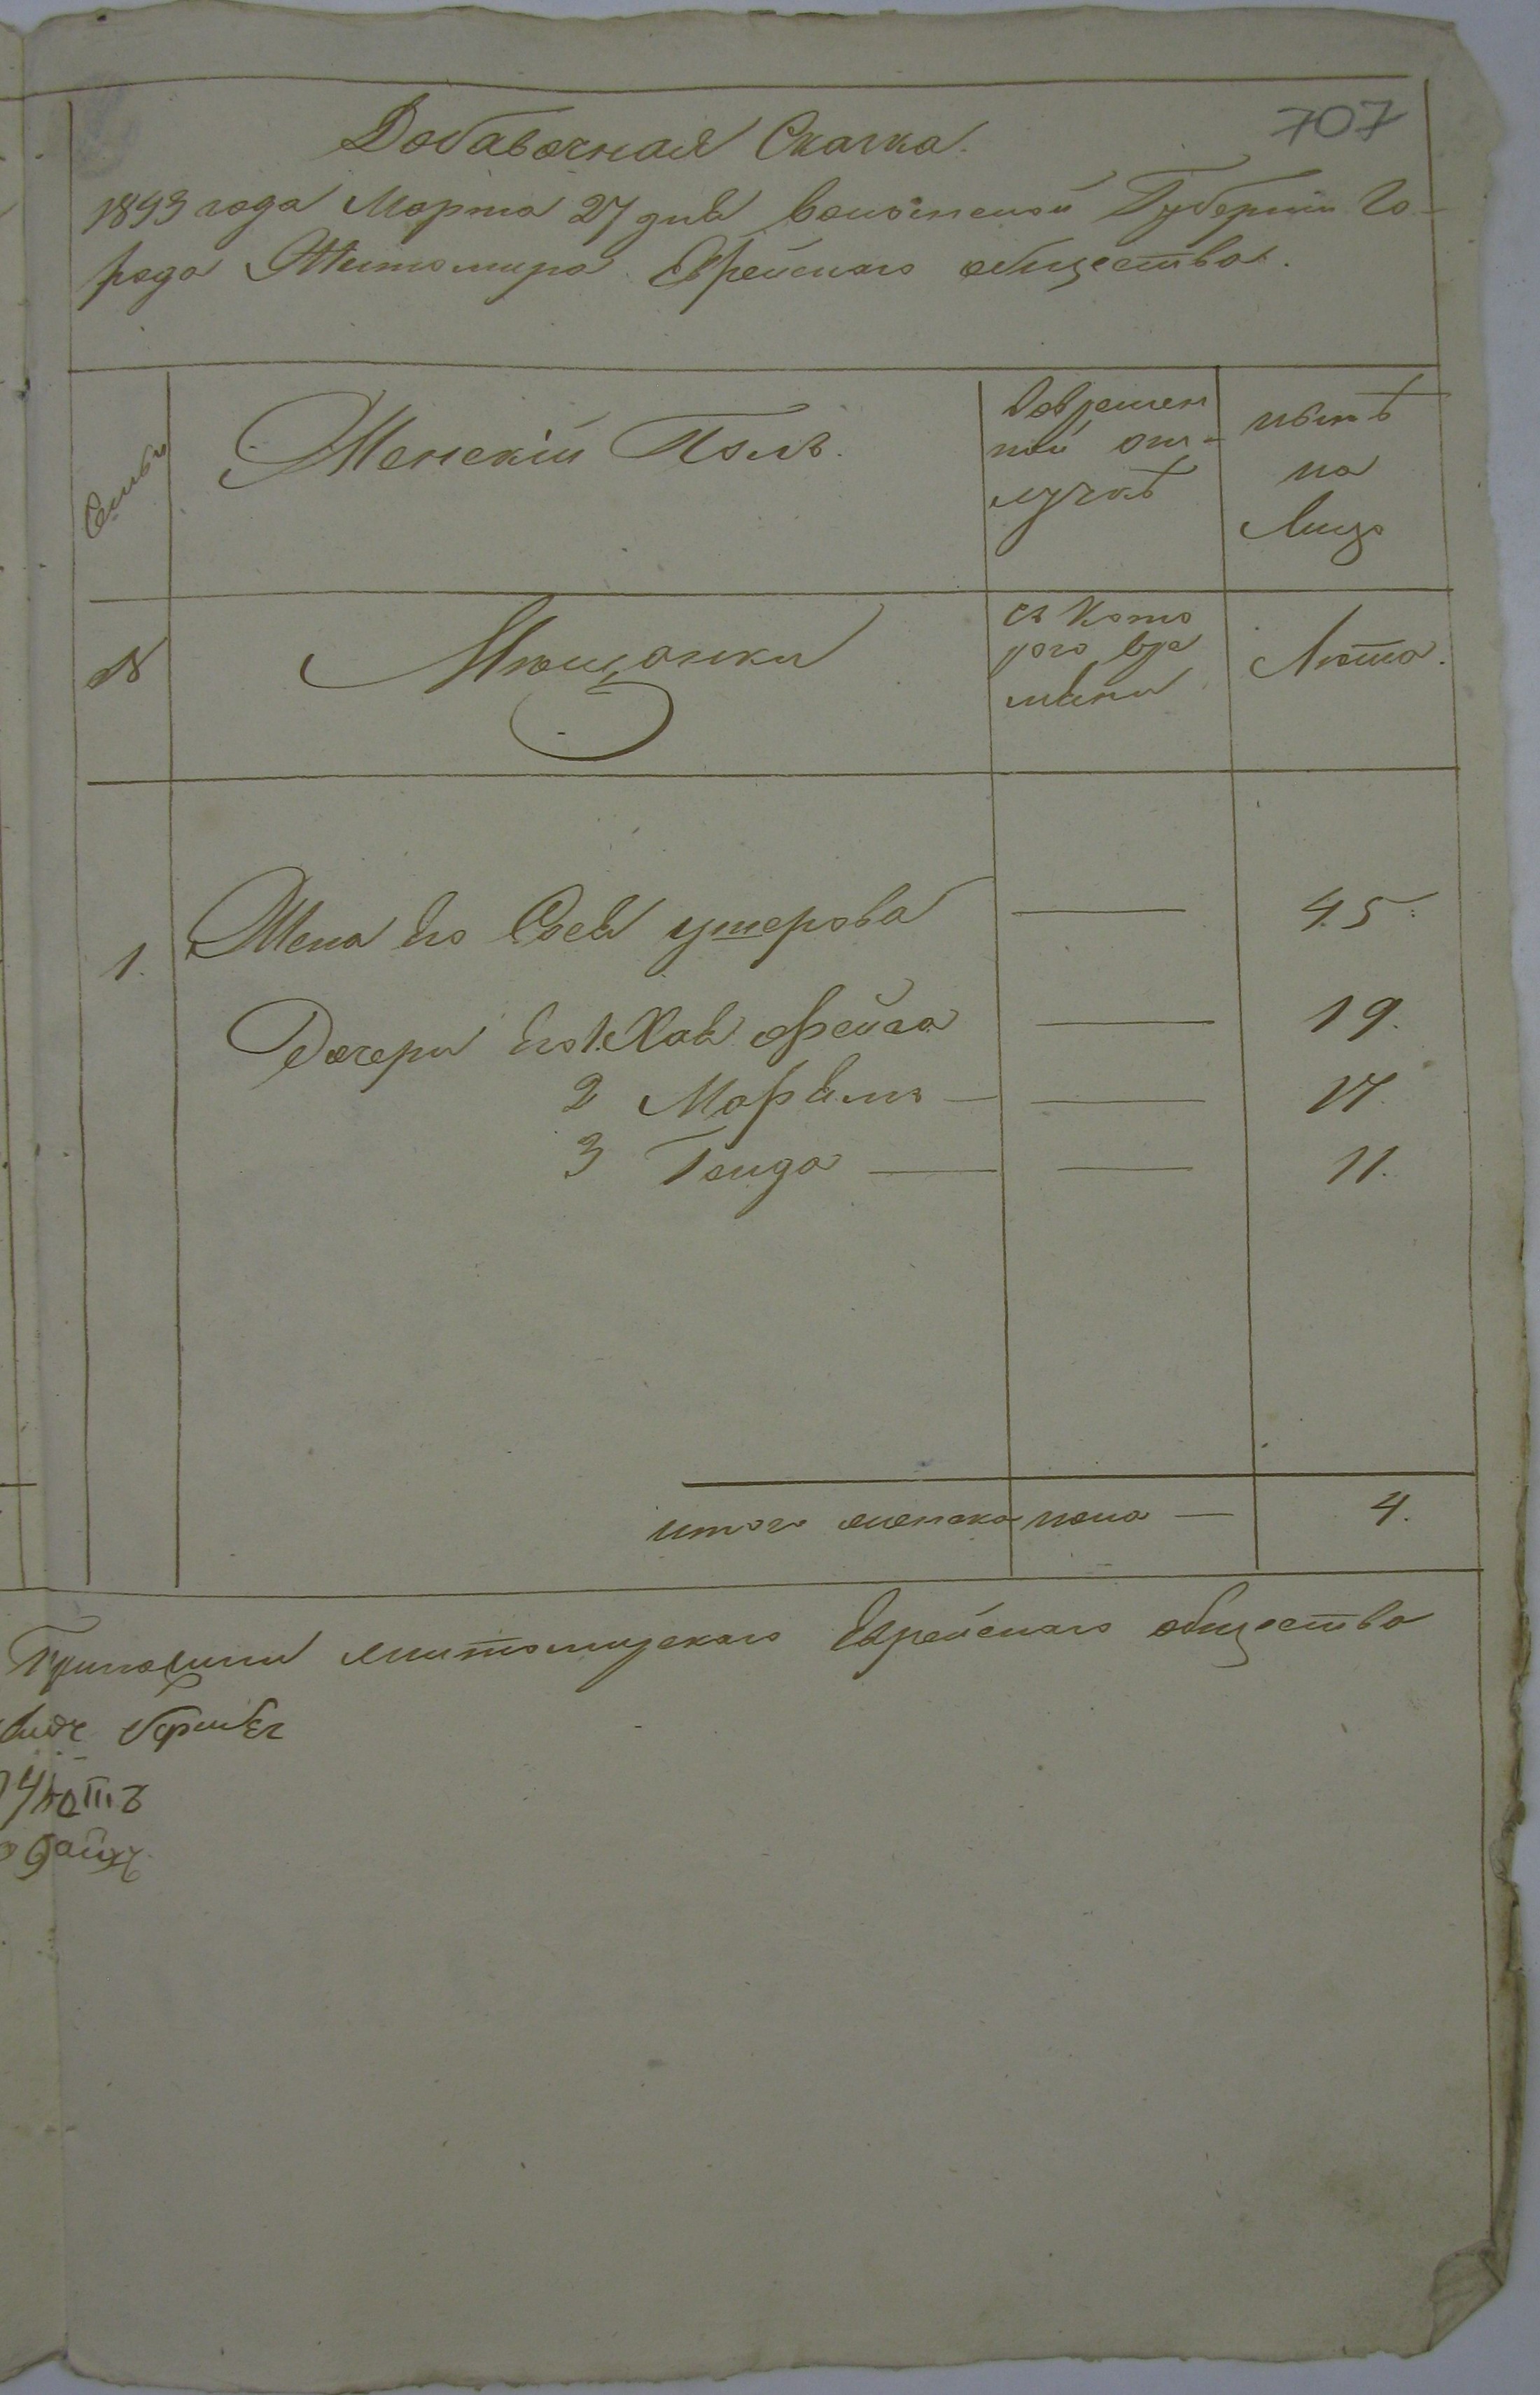 707
Добавочная Сказка.
1893 года Марта 27 дня Волынской Губернии Го-
рода Житомира Еврейскаго общества.
Семьи
Женскій Полъ.
Вовремен
ной от-
лучкѣ
нынѣ
на
Лицо
№
Мещанки
съ Кото
рого вре
мени
Лѣта.
1. Жена Его Сося Ушерова — 45.
Дочери Его 1. Хая Фейга — 19.
2 Марьямъ — — 17.
3 Генда — — 11.
итого женска пола — 4.
Житомирскаго Еврейскаго общества